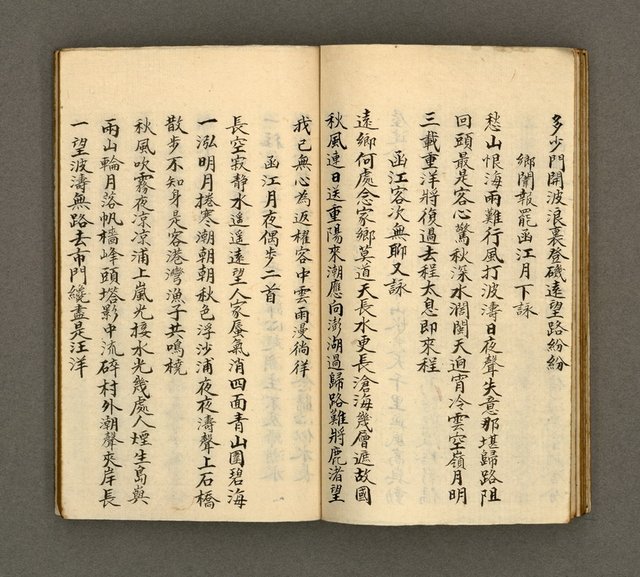 多少門開波浪裏登磯遠望路紛紛
鄉闈報罷函江月下詠
愁山恨海雨難行風打波濤日夜聲失意那堪歸路阻
回頭最是客心驚秋深水濶關天迫宵冷雲空嶺月明
三載重洋將復過去程太息即來程
函江客次無聊又詠
遠鄉何處念家鄉莫道天長水更長滄海幾層遮故國
秋風連日送重陽來潮應向澎湖過歸路難將鹿渚望
我已無心為返櫂客中雲雨漫徜徉
函江月夜偶步二首
長空寂靜水遥遥遠望人家蜃氣消四面青山圍碧海
一泓明月捲寒潮朝朝秋色浮沙浦夜夜濤聲上石橋
散步不知身是客港灣漁子共鳴橈
秋風吹霧夜凉凉浦上嵐光接水光幾處人煙生島與
兩山輪月落帆檣峰頭塔影中流碎村外潮聲夾岸長
一望波濤無路去市門纔盡是汪洋